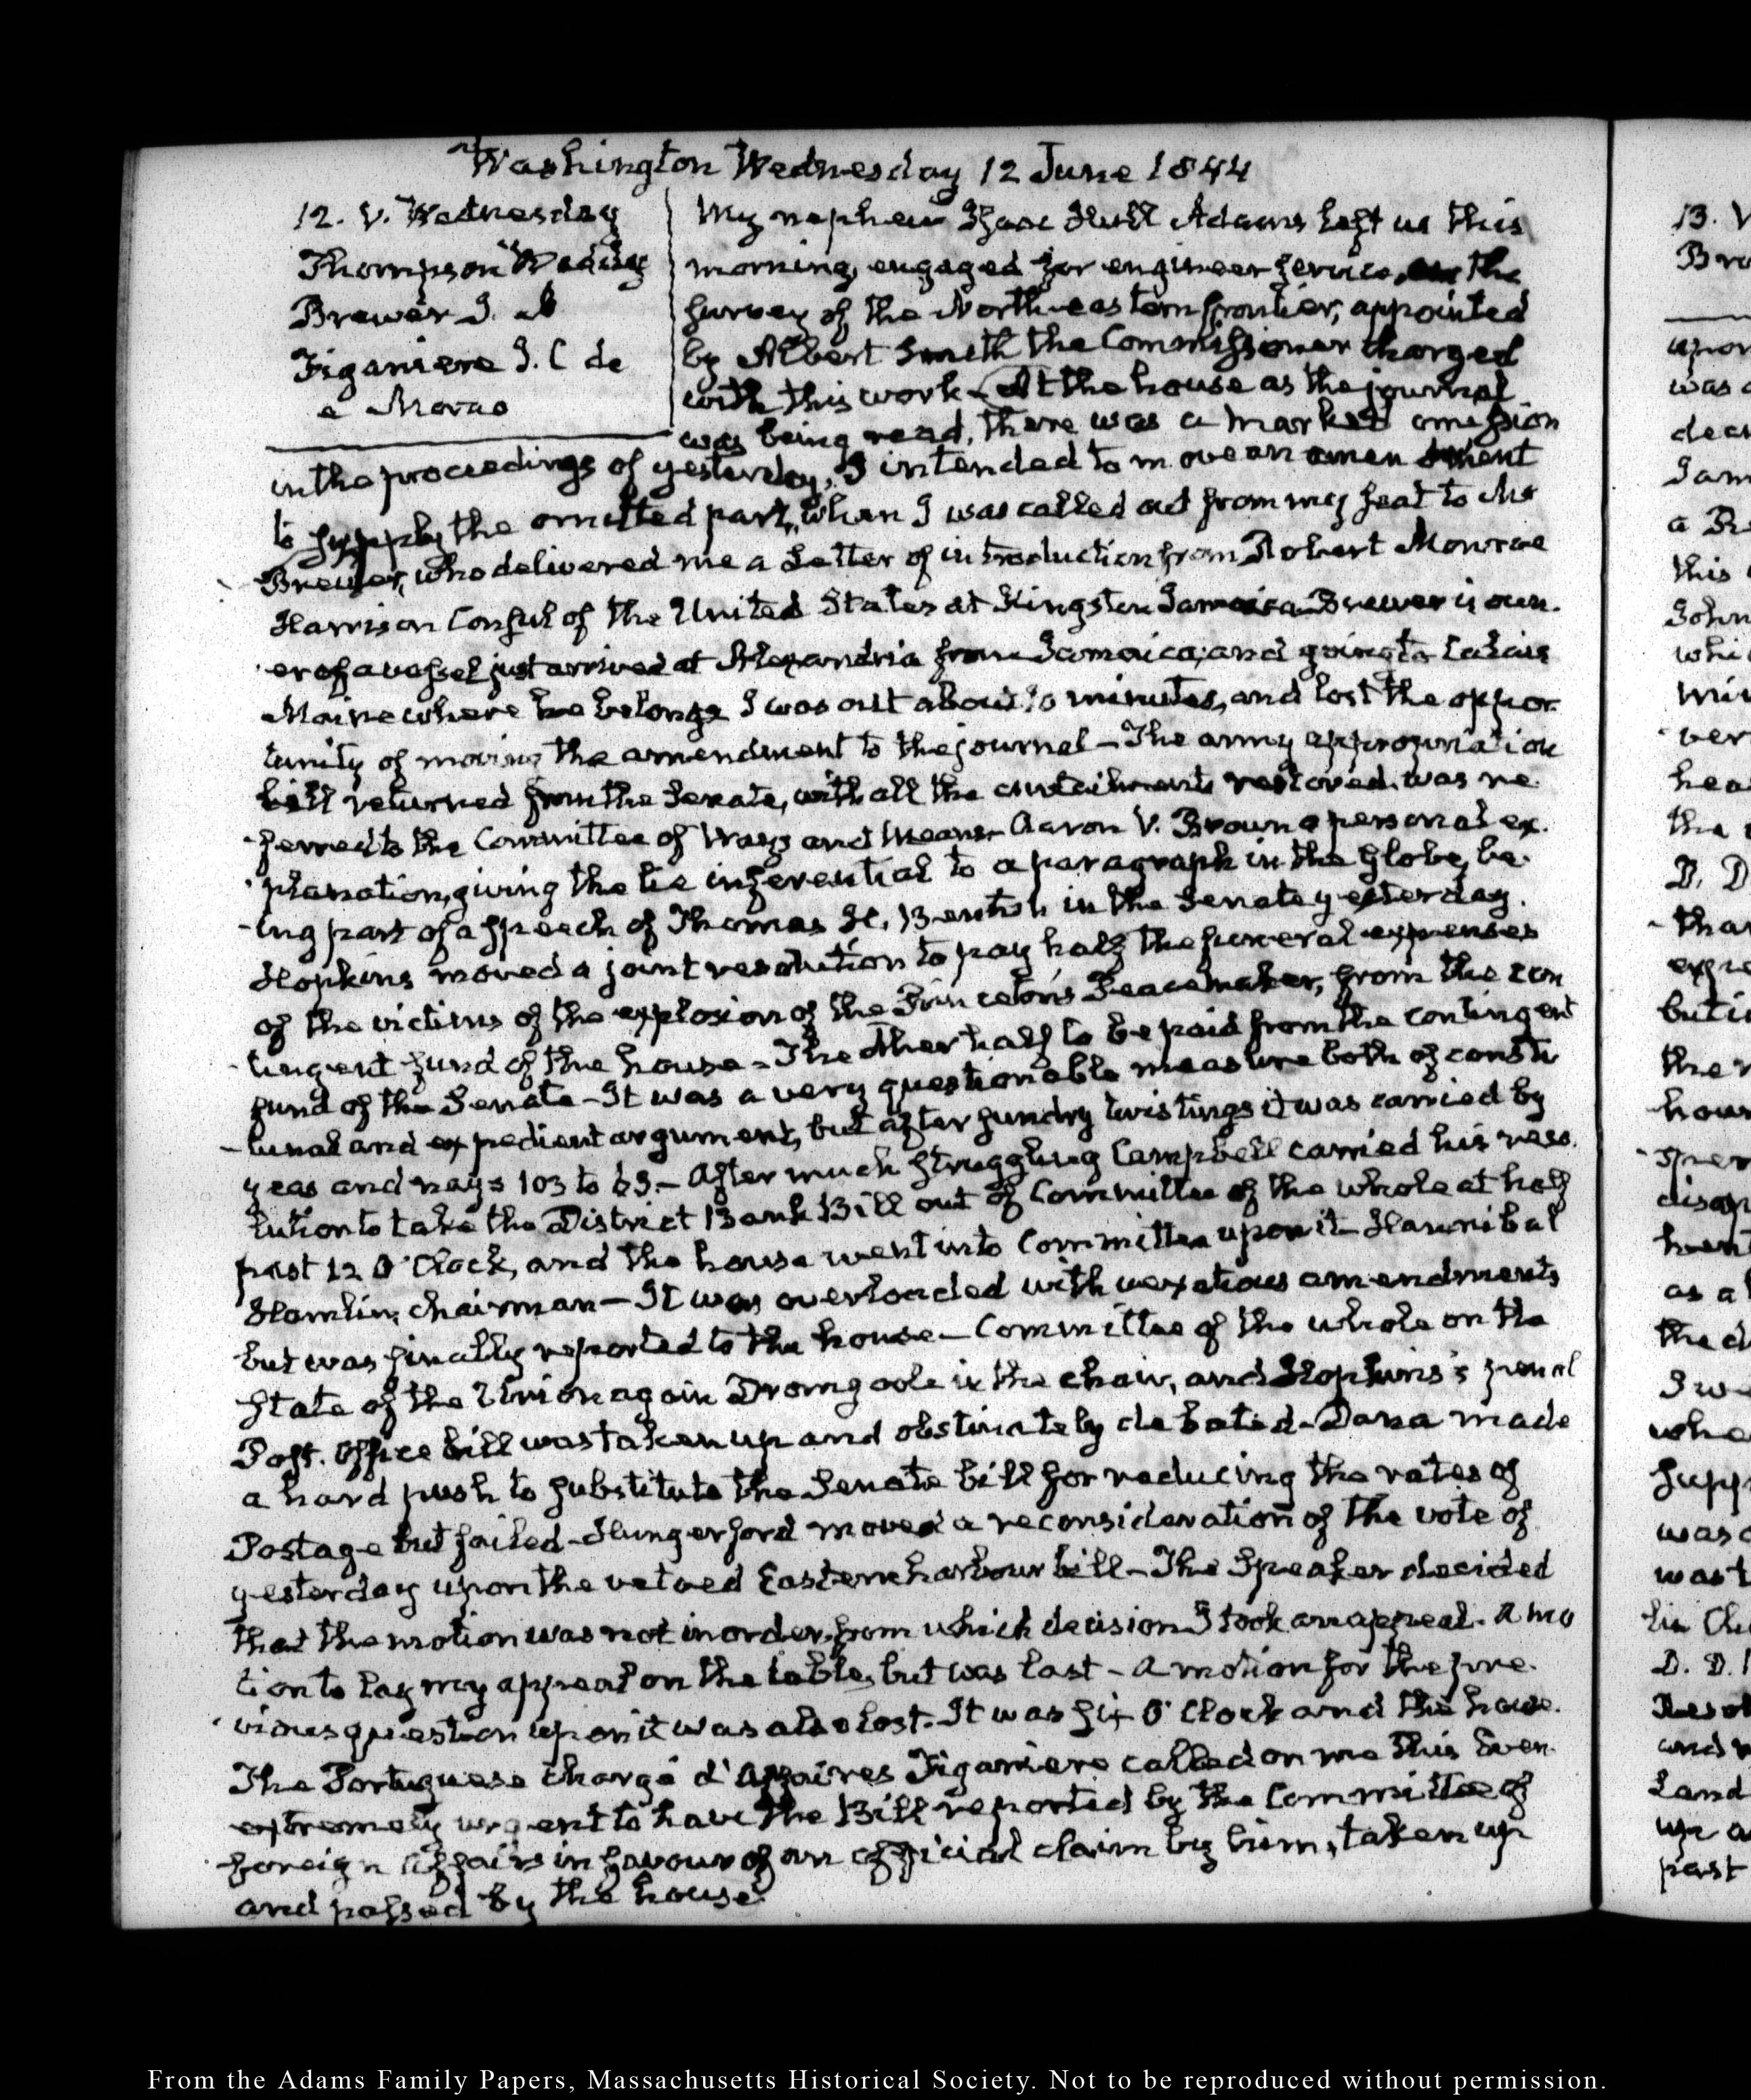 Washington Wednesday 12 June 1844
12. V. Wednesday
Thompson Waddy
Brewer J.
Figaniere J. C de
e Morao
My nephew Isaac Hull Adams left us this
morning, engaged for engineer service, on the
survey of the North-eastern frontier, appointed
by Albert Smith the Commissioner charged
with this work – At the house as the journal
was being read, there was a marked omission
in the proceedings of yesterday, I intended to move an amendment
to supply the omitted part, when I was called out from my seat to Mr
Brewer, who delivered me a Letter of introduction from Robert Monroe
Harrison Consul of the United States at Kingston Jamaica Brewer is own-
er of a vessel just arrived at Alexandria from Jamaica, and going to Calais
Maine where he belongs I was out about 10 minutes, and lost the oppor-
tunity of moving the amendment to the journal – The army appropriation
bill returned from the Senate, with all the curtailments restored. was re-
-ferred to the Committee of Ways and Means – Aaron V. Brown a personal ex-
-planation, giving the lie inferential to a paragraph in the Globe, be-
-ing part of a speech of Thomas H. Benton in the Senate yesterday.
Hopkins moved a joint resolution to pay half the funeral expenses
of the victims of the explosion of the Princeton's Peacemaker, from the con
-tingent fund of the house – The other half to be paid from the contingent
fund of the Senate – It was a very questionable measure both of consti
-tunal and expedient argument, but after sundry twistings it was carried by
yeas and nays 103 to 63. – After much struggling Campbell carried his reso-
lution to take the District Bank Bill out of Committee of the whole at half
past 12 O'Clock, and the house went into Committee upon it – Hannibal
Hamlin, chairman – It was overloaded with vexatious amendments
but was finally reported to the house – Committee of the whole on the
state of the Union again Dromgoole in the chair, and Hopkins's penal
Post. Office bill was taken up and obstinately debated – Dana made
a hard push to substitute the Senate bill for reducing the rates of
Postage but failed – Hungerford moved a reconsideration of the vote of
yesterday upon the vetoed Eastern harbour bill – The Speaker decided
that the motion was not in order, from which decision I took an appeal. A mo
tion to lay my appeal on the table, but was lost – A motion for the pre-
-vious question upon it was also lost. It was six O'Clock and the house.
The Portuguese chargé d'Affaires Figaniere called on me this Even-
extremely urgent to have the Bill reported by the Committee of
foreign Affairs in favour of an official claim by him, taken up
and passed by the house
13. V
Bro
upon
was
decr
Jam
a Br
this
John
whi
Min
ver
hea
the
D. D
-tha
expre
but i
the r
hour
sper
disap
hunt
as a
the d
I we
whe
supp
was
was t
tin Cha
D. D.
Resol
and
Land
up a
past
From the Adams Family Papers, Massachusetts Historical Society. Not to be reproduced without permission.